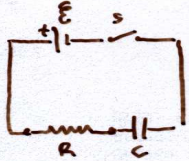 ℰ S
+
R C